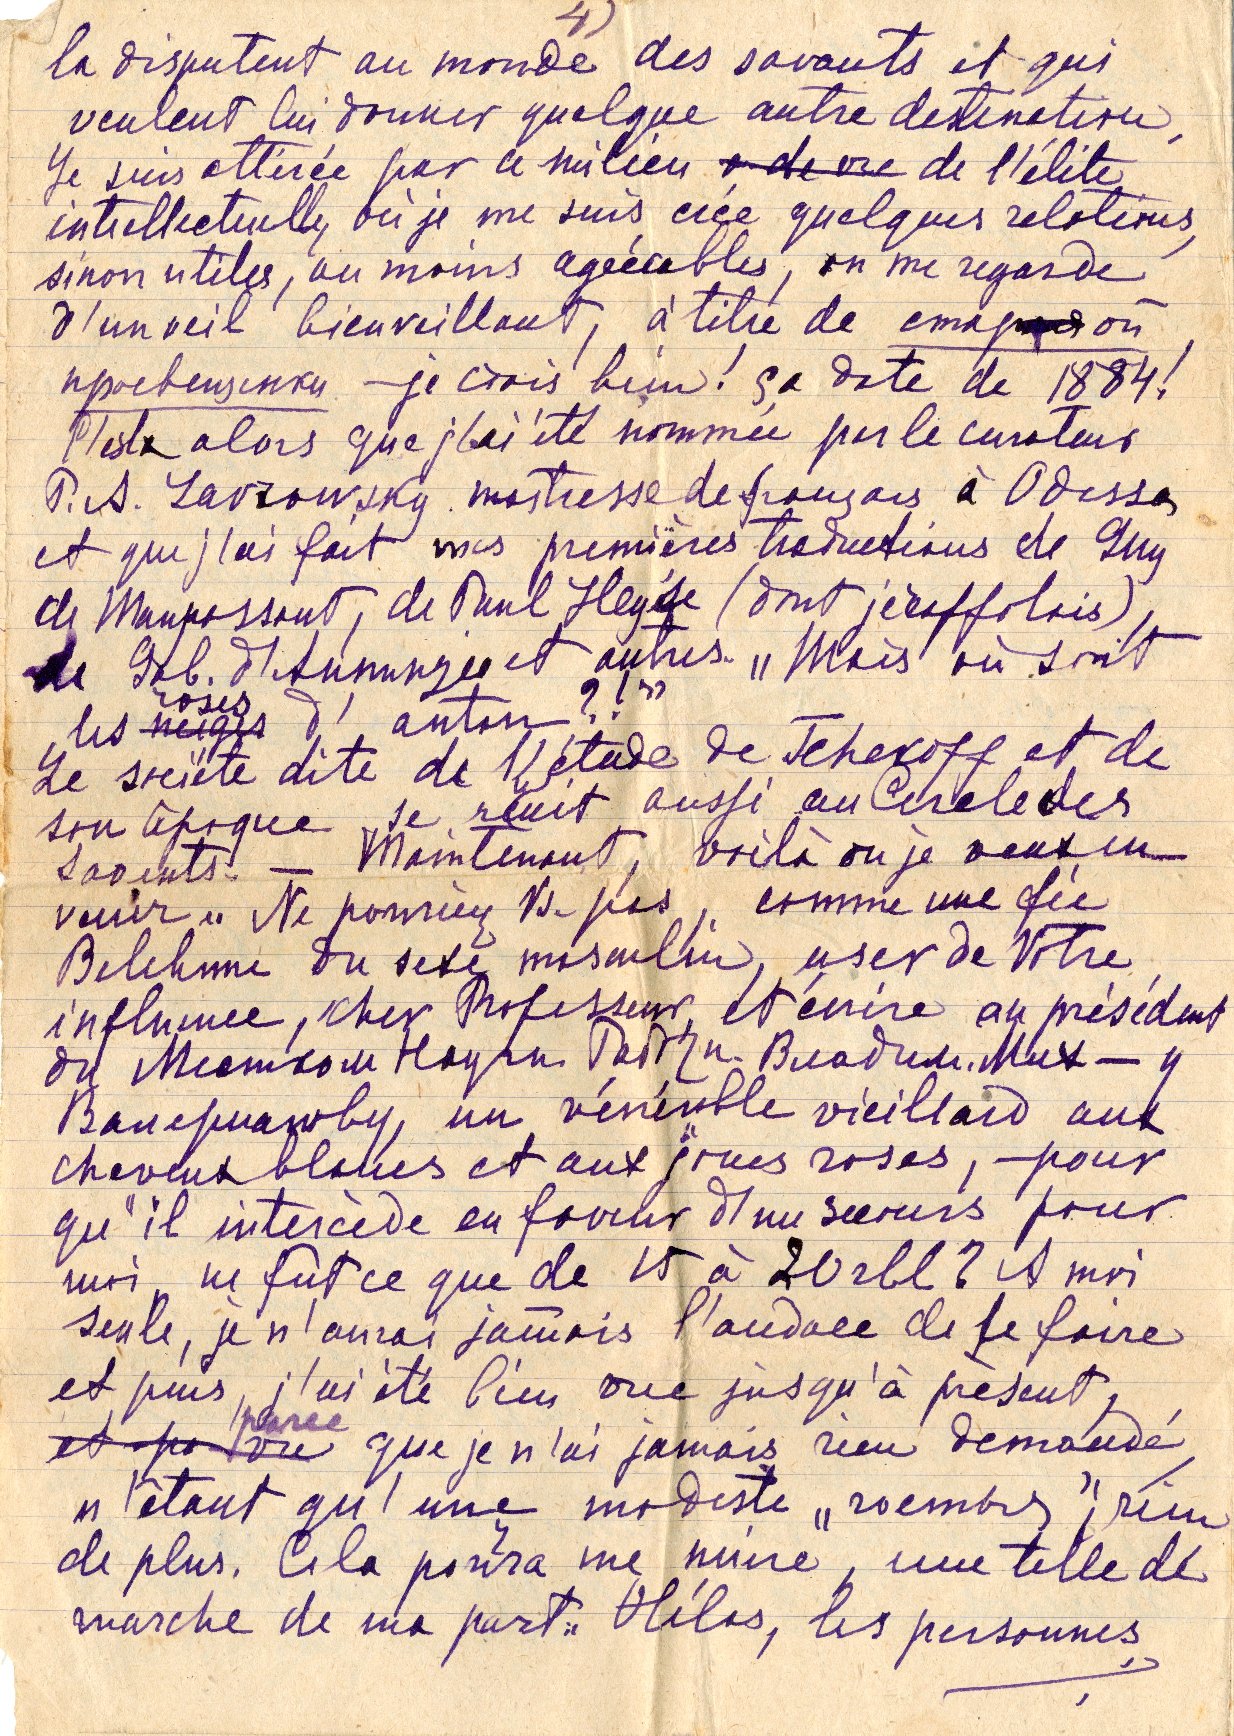 4)
la disputent au monde des savants et qui
veulent lui donner quelque autre destination,
Je suis attirée par ce milieu de l'élite
intellectuelle, où je me suis créé quelques relations,
sinon utiles, au moins agréables, on me regarde
d'un œil bienveillant, à titre de старой
просвещенки – je crois bien! Ça date de 1884!
C'est alors que j'ai été nommée par le curateur
P. A. Lavrowsky maîtresse de français à Odessa
et que j'ai fait mes premières traductions de Guy
de Maupassant, de Paul Heyse (dont je raffolais),
de Gab. d'Annunzio et autres. „Mais où sont
les neiges roses d'antan?!”
La société dite de l'étude de Tchekoff et de
son époque se réunit aussi au Cercle des
savants. – Maintenant, voilà où je veux en
venir.. Ne pourriez Vs pas, comme une fée
du sexe masculin, user de Votre
influence, cher Professeur, et écrire au président
du Местком Научн. Владим. Мих – у
un vénérable vieillard aux
cheveux blancs et aux joues roses, – pour
qu'il intercède en faveur d'un secours pour
moi, ne fût ce que de 15 à 20 rbl? A moi
seule, je n'aurai jamais l'audace de le faire
et puis, j'ai été bien vue jusqu'à présent,
parce que je n'ai jamais rien demandé,
n'étant qu'une modeste „ ”, rien
de plus. Cela pourra me nuire, une telle dé
marche de ma part.. Hélas, les personnes